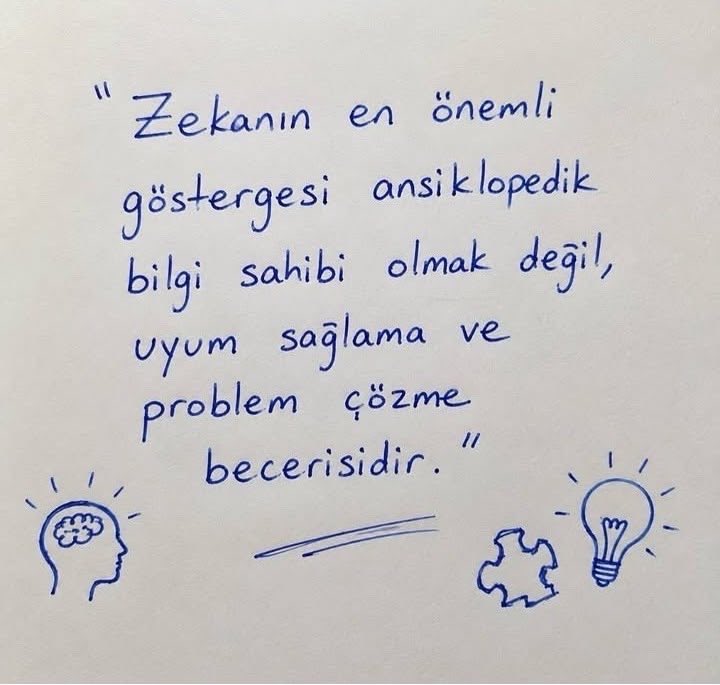 "Zekanın en önemli
göstergesi ansiklopedik
bilgi sahibi olmak değil,
uyum sağlama ve
problem çözme
becerisidir."